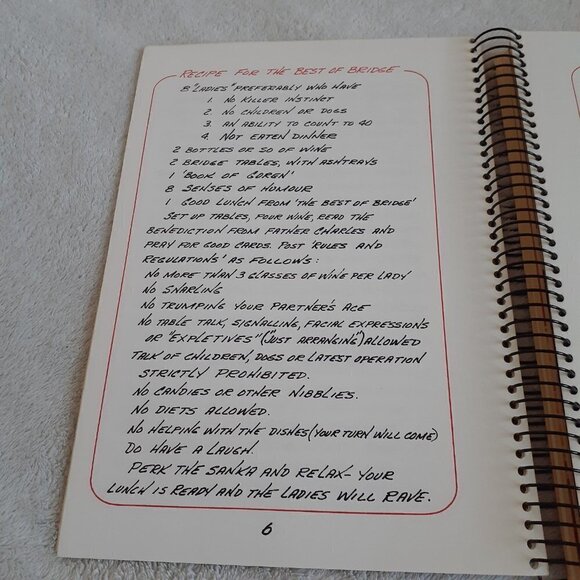 RECIPE FOR THE BEST OF BRIDGE
8 "LADIES" PREFERABLY WHO HAVE
1. NO KILLER INSTINCT
2. NO CHILDREN OR DOGS
3. AN ABILITY TO COUNT TO 40
4. NOT EATEN DINNER
2 BOTTLES OR SO OF WINE
2 BRIDGE TABLES, WITH ASHTRAYS
1 'BOOK OF GOREN'
8 SENSES OF HUMOUR
1 GOOD LUNCH FROM 'THE BEST OF BRIDGE'
SET UP TABLES, POUR WINE, READ THE
BENEDICTION FROM FATHER CHARLES AND
PRAY FOR GOOD CARDS. POST 'RULES AND
REGULATIONS' AS FOLLOWS:
NO MORE THAN 3 GLASSES OF WINE PER LADY
NO SNARLING
NO TRUMPING YOUR PARTNER'S ACE
NO TABLE TALK, SIGNALLING, FACIAL EXPRESSIONS
OR "EXPLETIVES" ("JUST ARRANGING") ALLOWED
TALK OF CHILDREN, DOGS OR LATEST OPERATION
STRICTLY PROHIBITED.
NO CANDIES OR OTHER NIBBLIES.
NO DIETS ALLOWED.
NO HELPING WITH THE DISHES (YOUR TURN WILL COME)
DO HAVE A LAUGH.
PERK THE SANKA AND RELAX - YOUR
LUNCH IS READY AND THE LADIES WILL RAVE.
6